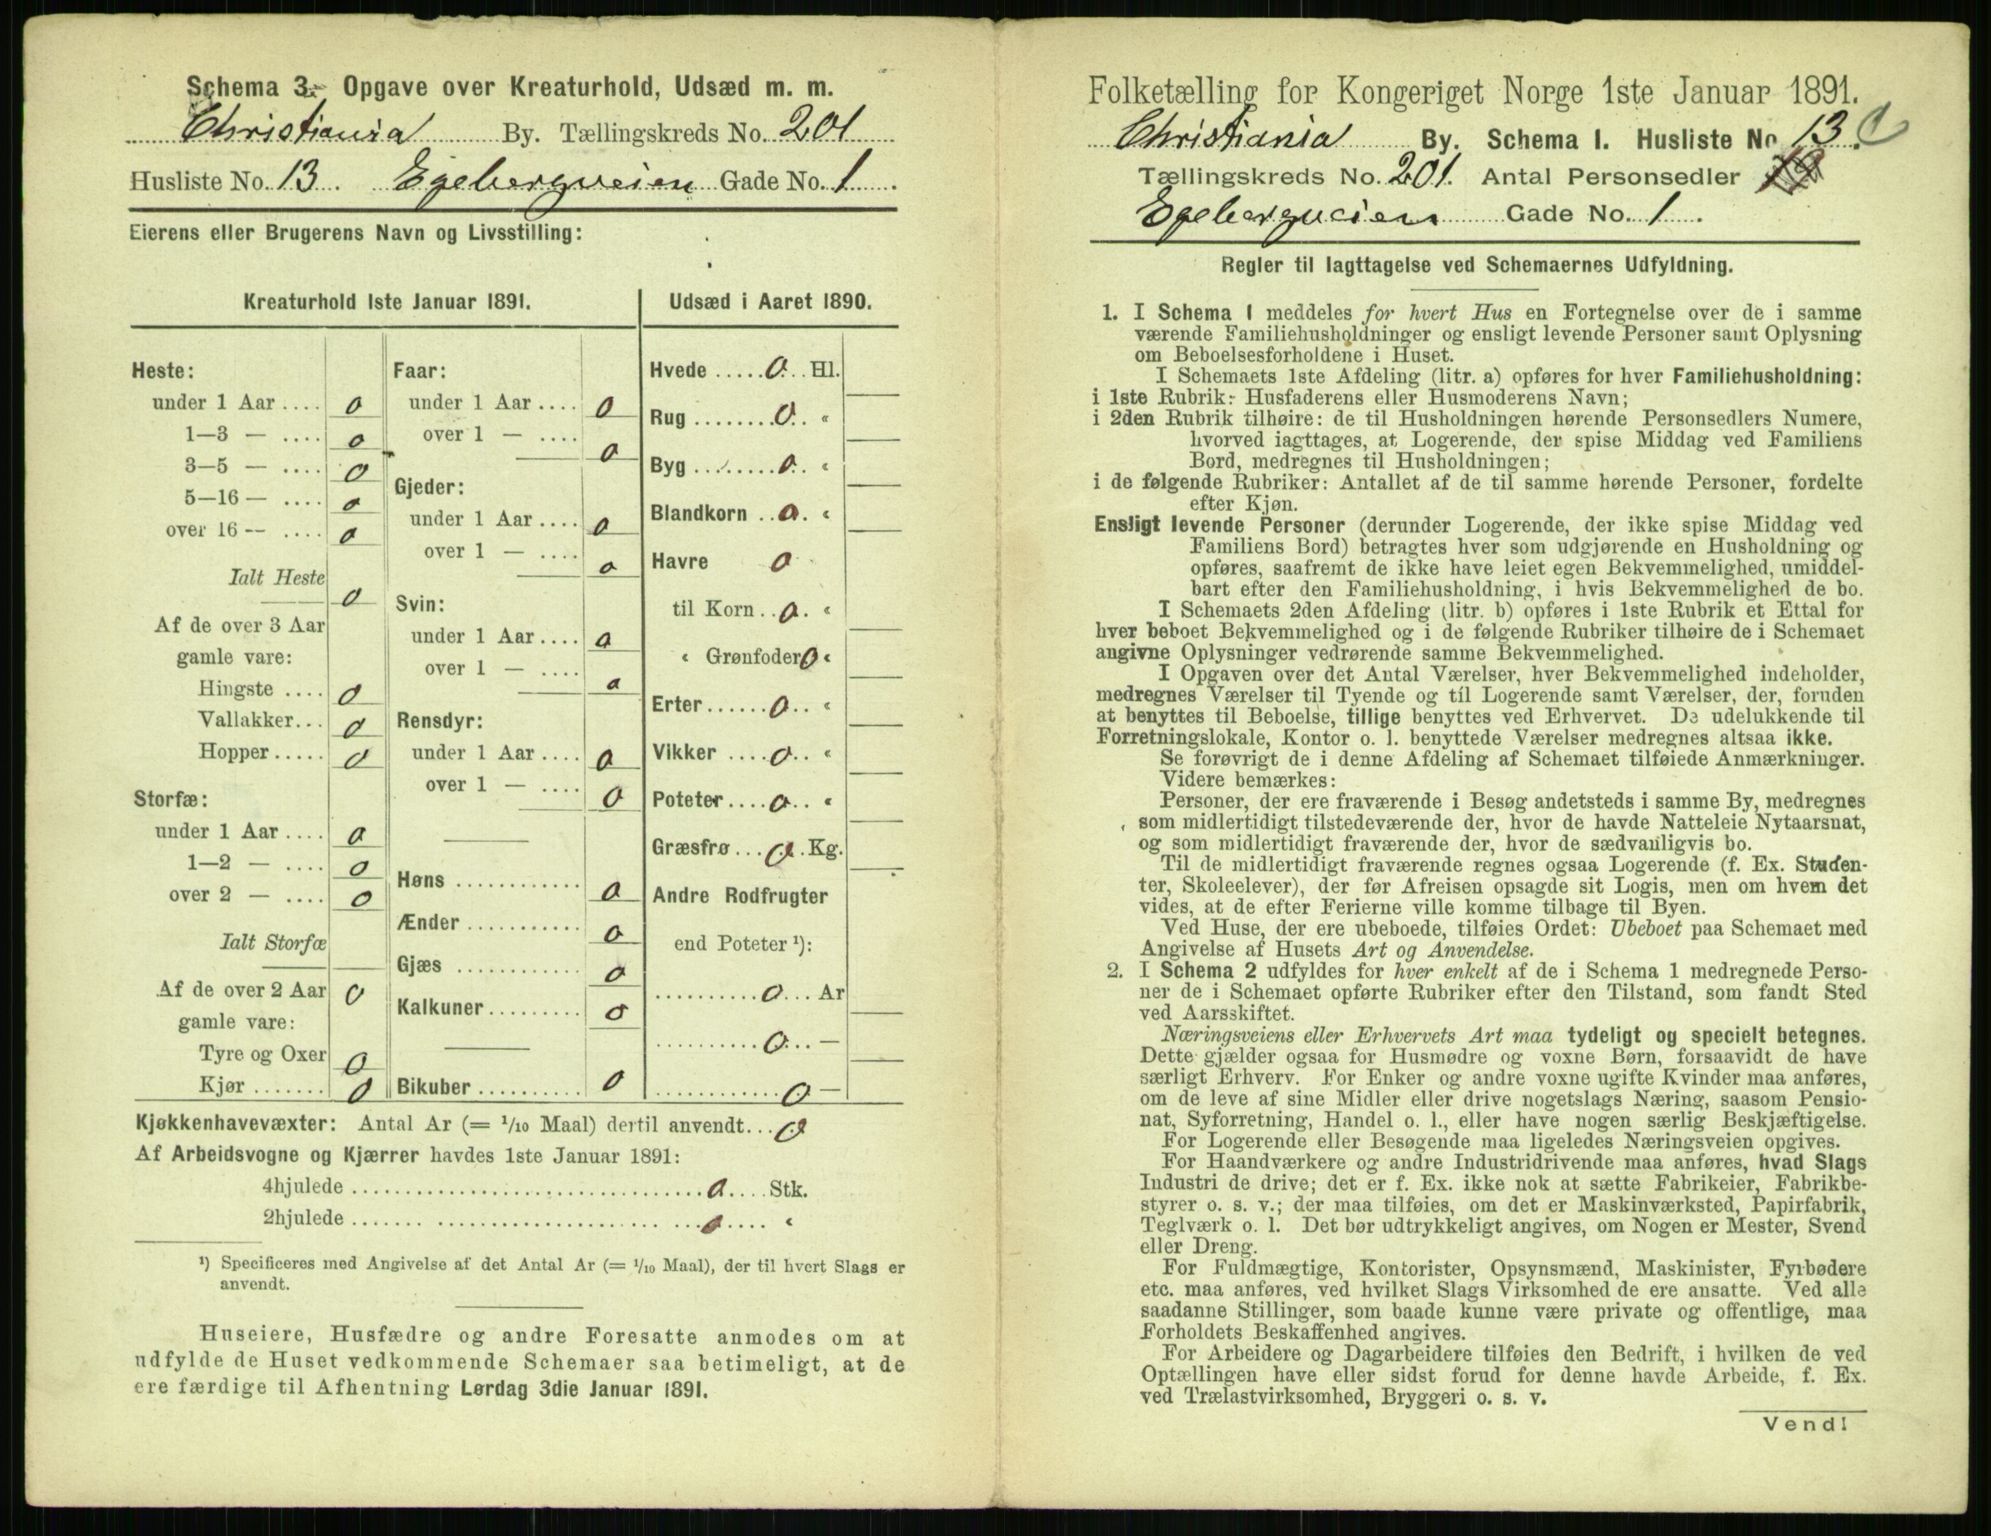 Schema 3. Opgave over Kreaturhold, Udsæd m. m.
Christiania By. Tællingskreds No. 201
Husliste No. 13. Egebergveien Gade No. 1.
Eierens eller Brugerens Navn og Livsstilling:
Kreaturhold 1ste Januar 1891.
Heste:
under 1 Aar .... 0
1—3 — .... 0
3—5 — .... 0
5—16 — .... 0
over 16 — .... 0
Ialt Heste 0
Af de over 3 Aar
gamle vare:
Hingste .... 0
Vallakker... 0
Hopper ..... 0
Storfæ:
under 1 Aar .... 0
1—2 — .... 0
over 2 — .... 0
Ialt Storfæ
Af de over 2 Aar 0
gamle vare:
Tyre og Oxer 0
Kjør ....... 0
Faar:
under 1 Aar .... 0
over 1 — .... 0
Gjeder:
under 1 Aar .... 0
over 1 — .... 0
Svin:
under 1 Aar .... 0
over 1 — .... 0
Rensdyr:
under 1 Aar .... 0
over 1 — .... 0
Høns ............ 0
Ænder ........... 0
Gjæs ............ 0
Kalkuner ......... 0
Bikuber .......... 0
Udsæd i Aaret 1890.
Hvede ..... 0 .. Hl.
Rug ........ 0 .. «
Byg ........ 0 . «
Blandkorn .. 0 . «
Havre 0
til Korn .. 0 . «
« Grønfoder 0 «
Erter ...... 0 .. «
Vikker .... 0 .. «
Poteter .... 0 .. «
Græsfrø ... 0 . Kg.
Andre Rodfrugter
end Poteter ¹):
.......... 0 ... Ar
.......... 0 ... —
............ 0 —
Kjøkkenhavevæxter: Antal Ar (= 1/10 Maal) dertil anvendt... 0
Af Arbeidsvogne og Kjærrer havdes 1ste Januar 1891:
4hjulede ................................. 0 .... Stk.
2hjulede ................................. 0 .... «
¹) Specificeres med Angivelse af det Antal Ar (= 1/10 Maal), der til hvert Slags er
anvendt.
Huseiere, Husfædre og andre Foresatte anmodes om at
udfylde de Huset vedkommende Schemaer saa betimeligt, at de
ere færdige til Afhentning Lørdag 3die Januar 1891.
Folketælling for Kongeriget Norge 1ste Januar 1891.
Christiania By. Schema I. Husliste No. 13.
Tællingskreds No. 201. Antal Personsedler
Egebergveien Gade No. 1.
Regler til Iagttagelse ved Schemaernes Udfyldning.
1. I Schema 1 meddeles for hvert Hus en Fortegnelse over de i samme
værende Familiehusholdninger og ensligt levende Personer samt Oplysning
om Beboelsesforholdene i Huset.
I Schemaets 1ste Afdeling (litr. a) opføres for hver Familiehusholdning:
i 1ste Rubrik: Husfaderens eller Husmoderens Navn;
i 2den Rubrik tilhøire: de til Husholdningen hørende Personsedlers Numere,
hvorved iagttages, at Logerende, der spise Middag ved Familiens
Bord, medregnes til Husholdningen;
i de følgende Rubriker: Antallet af de til samme hørende Personer, fordelte
efter Kjøn.
Ensligt levende Personer (derunder Logerende, der ikke spise Middag ved
Familiens Bord) betragtes hver som udgjørende en Husholdning og
opføres, saafremt de ikke have leiet egen Bekvemmelighed, umiddel-
bart efter den Familiehusholdning, i hvis Bekvemmelighed de bo.
I Schemaets 2den Afdeling (litr. b) opføres i 1ste Rubrik et Ettal for
hver beboet Bekvemmelighed og i de følgende Rubriker tilhøire de i Schemaet
angivne Oplysninger vedrørende samme Bekvemmelighed.
I Opgaven over det Antal Værelser, hver Bekvemmelighed indeholder,
medregnes Værelser til Tyende og til Logerende samt Værelser, der, foruden
at benyttes til Beboelse, tillige benyttes ved Erhvervet. De udelukkende til
Forretningslokale, Kontor o. l. benyttede Værelser medregnes altsaa ikke.
Se forøvrigt de i denne Afdeling af Schemaet tilføiede Anmærkninger.
Videre bemærkes:
Personer, der ere fraværende i Besøg andetsteds i samme By, medregnes
som midlertidigt tilstedeværende der, hvor de havde Natteleie Nytaarsnat,
og som midlertidigt fraværende der, hvor de sædvanligvis bo.
Til de midlertidigt fraværende regnes ogsaa Logerende (f. Ex. Studen-
ter, Skoleelever), der før Afreisen opsagde sit Logis, men om hvem det
vides, at de efter Ferierne ville komme tilbage til Byen.
Ved Huse, der ere ubeboede, tilføies Ordet: Ubeboet paa Schemaet med
Angivelse af Husets Art og Anvendelse.
2. I Schema 2 udfyldes for hver enkelt af de i Schema 1 medregnede Perso-
ner de i Schemaet opførte Rubriker efter den Tilstand, som fandt Sted
ved Aarsskiftet.
Næringsveiens eller Erhvervets Art maa tydeligt og specielt betegnes.
Dette gjælder ogsaa for Husmødre og voxne Børn, forsaavidt de have
særligt Erhverv. For Enker og andre voxne ugifte Kvinder maa anføres,
om de leve af sine Midler eller drive nogetslags Næring, saasom Pensio-
nat, Syforretning, Handel o. l., eller have nogen særlig Beskjæftigelse.
For Logerende eller Besøgende maa ligeledes Næringsveien opgives.
For Haandværkere og andre Industridrivende maa anføres, hvad Slags
Industri de drive; det er f. Ex. ikke nok at sætte Fabrikeier, Fabrikbe-
styrer o. s. v.; der maa tilføies, om det er Maskinværksted, Papirfabrik,
Teglværk o. l. Det bør udtrykkeligt angives, om Nogen er Mester, Svend
eller Dreng.
For Fuldmægtige, Kontorister, Opsynsmænd, Maskinister, Fyrbødere
etc. maa anføres, ved hvilket Slags Virksomhed de ere ansatte. Ved alle
saadanne Stillinger, som baade kunne være private og offentlige, maa
Forholdets Beskaffenhed angives.
For Arbeidere og Dagarbeidere tilføies den Bedrift, i hvilken de ved
Optællingen have eller sidst forud for denne havde Arbeide, f. Ex.
ved Trælastvirksomhed, Bryggeri o. s. v.
Vend!